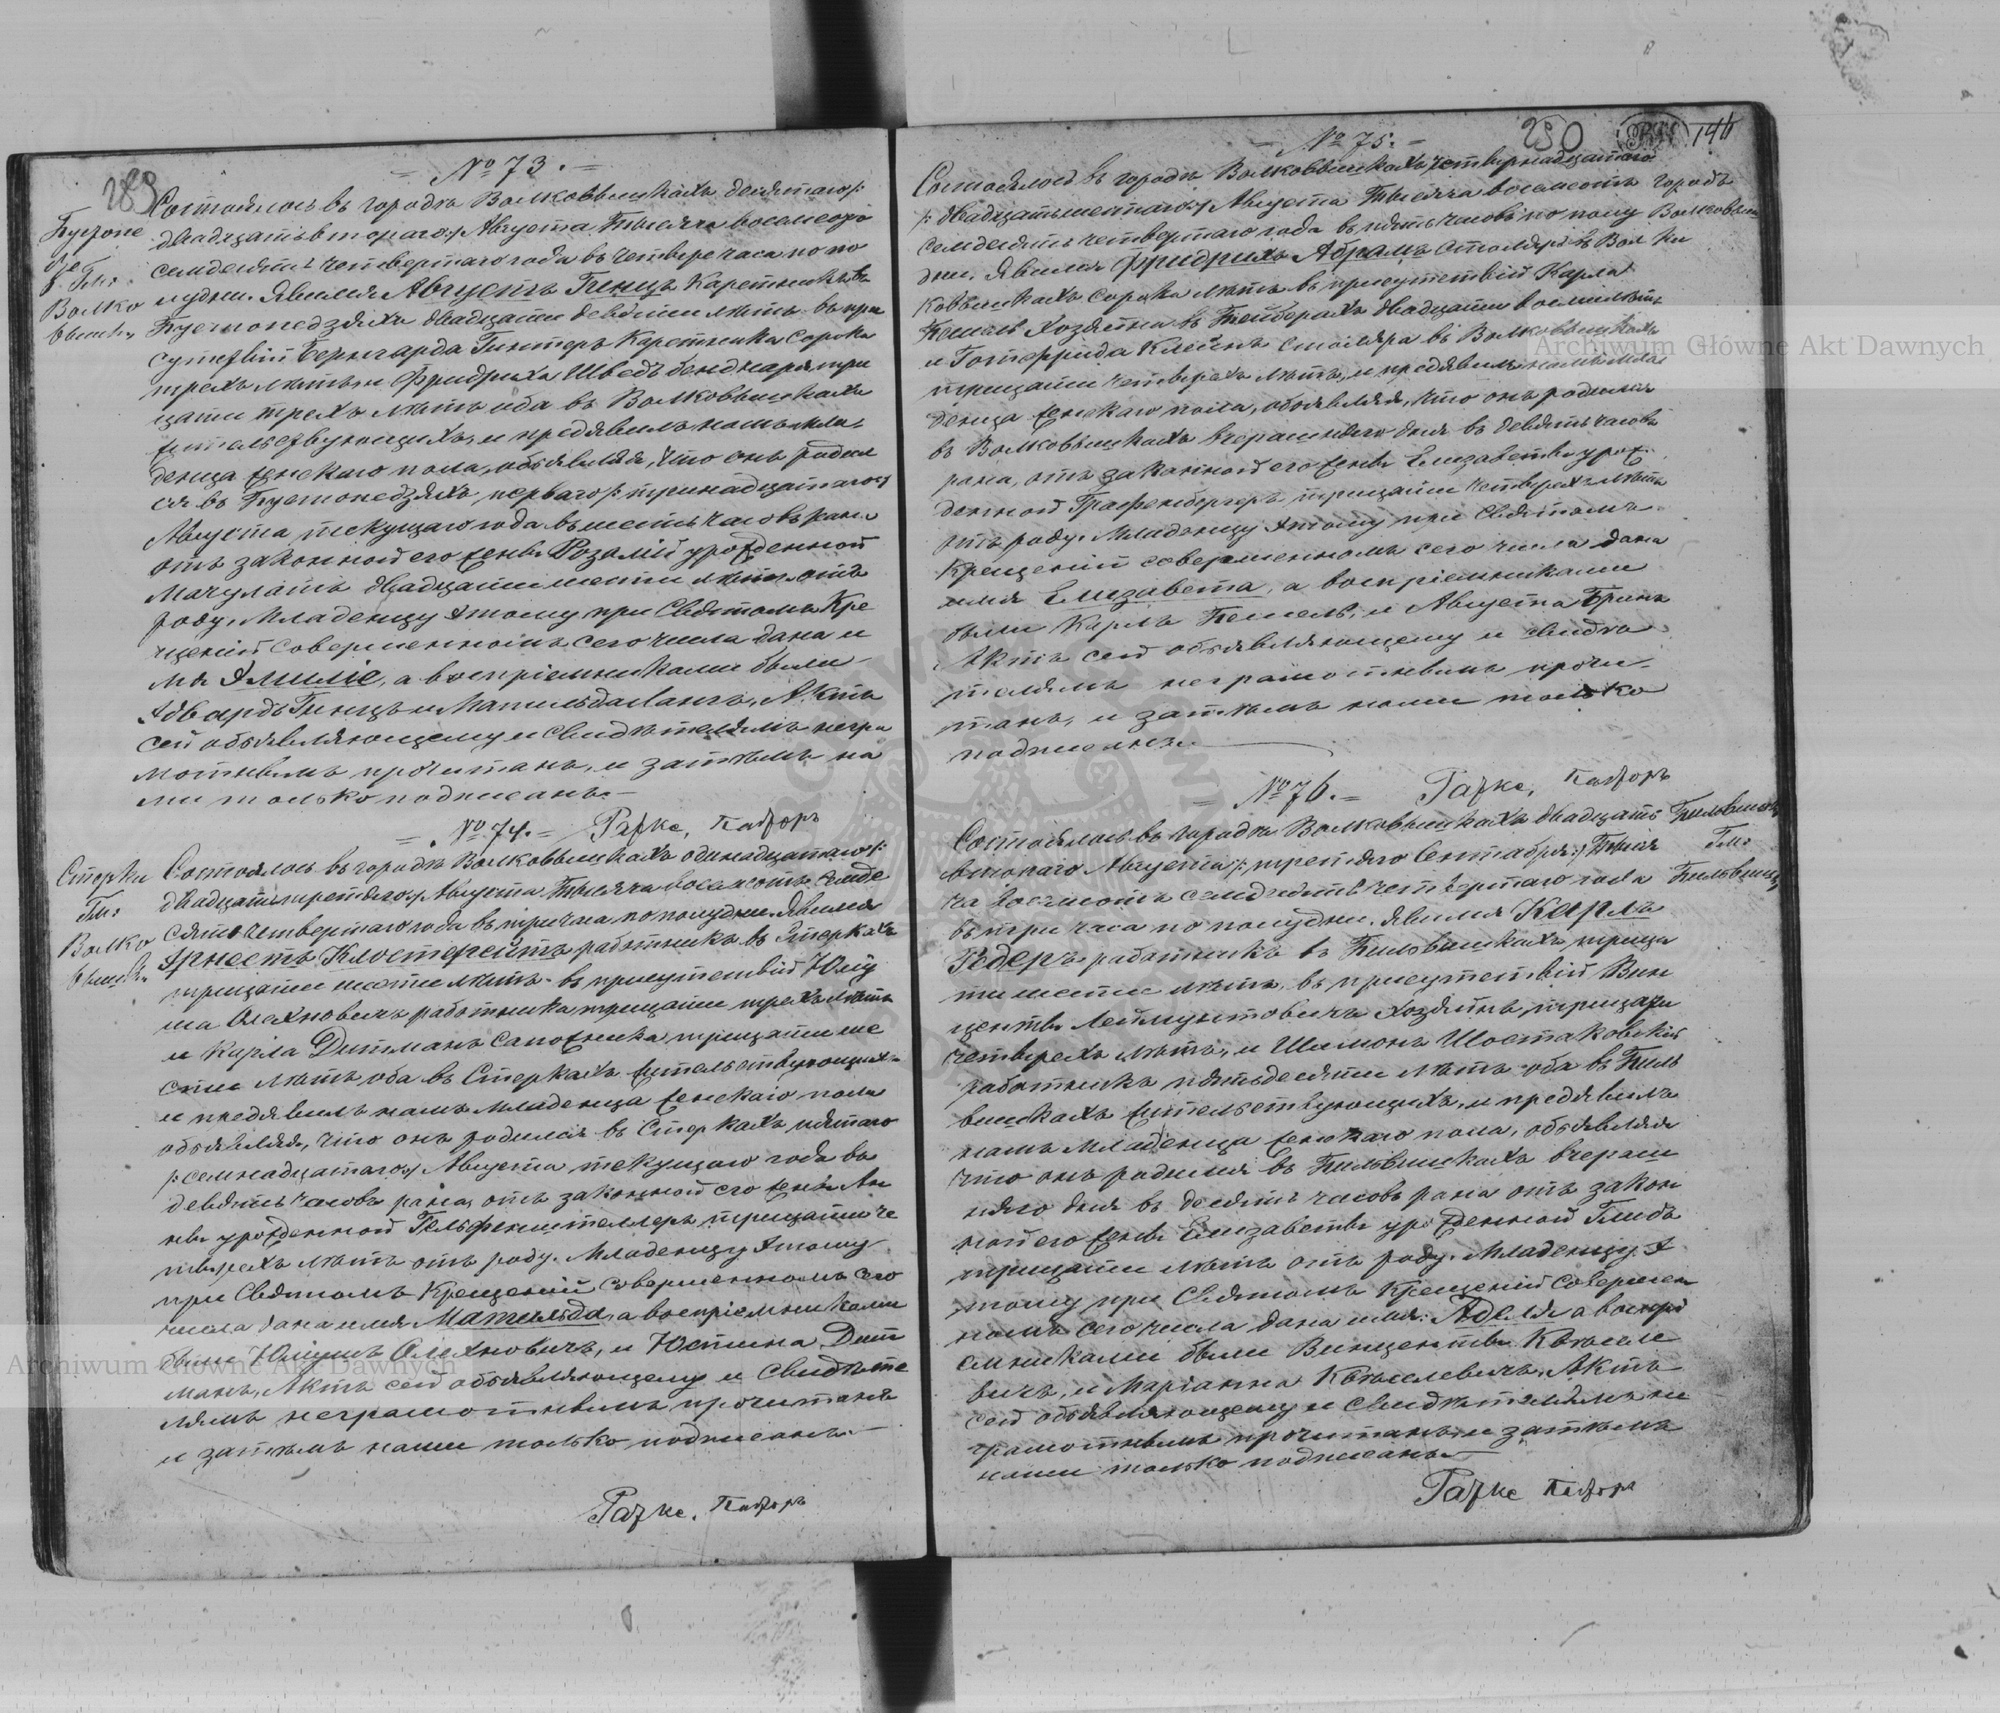 289
= № 73. =
Бустопе
дзе
г. Гм:
Волко
вышки
Состоялось въ городѣ Волковышкахъ десятаго /:
двадцать втораго :/ Августа Тысяча восемсотъ
семдесятъ четвертаго года въ четыре часа по по
лудни. Явился Августъ Генцъ Каретникъ въ
Бустопедзяхъ двадцати девяти лѣтъ въ при
сутствіи Бернгарда Гинтеръ Каретника сорока
трехъ лѣтъ и Фридриха Шведъ бенднаря три
цати трехъ лѣтъ оба въ Волковышкахъ
жительствующихъ, и предявилъ намъ мла
денца женскаго пола, объявляя, что онъ родил
ся въ Бустопедзяхъ, перваго /: тринадцатаго :/
Августа текущаго года въ шесть часовъ рано
отъ законной его жены Розаліи урожденной
Мачулатъ двадцати шести лѣтъ отъ
роду. Младенцу этому при Святомъ Кре
щеніи совершенномъ сего числа дана и
мя Эмиліе, а воспріемниками были
Эдвардъ Генцъ и Матильда Лангъ. Актъ
сей объявляющему и свидѣтелямъ негра
мотнымъ прочитанъ, и затѣмъ на
ми только подписанъ. —
= № 74. = Гарке, Пасторъ
Стерки
Гм:
Волко
вышки
Состоялось въ городѣ Волковышкахъ одинадцатаго /:
двадцать третяго :/ Августа Тысяча восемсотъ семде
сятъ четвертаго года въ три часа по полудни. Явился
Эрнестъ Клостерейтъ работникъ въ Стеркахъ
трицати шести лѣтъ въ присутствіи Юлу
ша Олехновичъ работника трицати трехъ лѣтъ
и Карла Дитманъ Сапожника трицати ше
сти лѣтъ оба въ Стеркахъ жительствующихъ
и предявилъ намъ младенца женскаго пола
объявляя, что онъ родился въ Стеркахъ пятаго
/: семнадцатаго :/ Августа текущаго года въ
девять часовъ рана, отъ законной его жены Ан
ны урожденной Гельфенштеллеръ трицати че
тырехъ лѣтъ отъ роду. Младенцу этому
при Святомъ Крещеніи совершенномъ сего
числа дана имя Матильда, а воспріемниками
были Юлушъ Олехновичъ, и Юстина Дит
манъ. Актъ сей объявляющему и свидѣте
лямъ неграмотнымъ прочитанъ
и затѣмъ нами только подписанъ. —
Гарке. Пасторъ
= № 75. =
250
146
Состоялось въ городѣ Волковышкахъ четырнадцатаго
/: двадцать шестаго :/ Августа Тысяча восемсотъ
семдесятъ четвертаго года въ пять часовъ по полу
дни. Явился Фридрихъ Абрамъ Столяръ въ Вол
ковышкахъ сорока лѣтъ въ присутствіи Карла
Пешель Хозяина въ двадцати восми лѣтъ
и Готфрида Клейнъ Столяра въ Волковышкахъ
трицати четырехъ лѣтъ, и предявилъ намъ мла
денца женскаго пола, объявляя, что онъ родился
въ Волковышкахъ вчерашняго дня въ девять часовъ
рана, отъ законной его жены Елизаветы урож
денной Графенбергеръ трицати четырехъ лѣтъ
отъ роду. Младенцу этому при Святомъ
Крещеніи совершенномъ сего числа дана
имя Елизавета, а воспріемниками
были Карлъ Пешель, и Августа Гринъ
Актъ сей объявляющему и свидѣ
телямъ неграмотнымъ прочи
танъ, и затѣмъ нами только
подписанъ. —
Городъ
Волковышки
= № 76. = Гарке, Пасторъ
Состоялось въ городѣ Волковышкахъ двадцать
втораго Августа /: третяго Сентября :/ Тыся
ча восемсотъ семдесятъ четвертаго года
въ три часа по полудни. Явился Карлъ
Гедеръ работникъ въ Пильвишкахъ, трица
ти шести лѣтъ, въ присутствіи Вин
центы Леймунтовичъ Хозяинъ, трицати
четырехъ лѣтъ, и Шимонъ Шостаковскій
работникъ пятьдесяти лѣтъ оба въ Пиль
вишкахъ жительствующихъ, и предявилъ
намъ младенца женскаго пола, объявляя
что онъ родился въ Пильвишкахъ вчераш
няго дня въ десять часовъ рана отъ закон
ной его жены Елизаветы урожденной Глидъ
трицати лѣтъ отъ роду. Младенцу э
тому при Святомъ Крещеніи Совершен
номъ сего числа дана имя: Аделя а воспрі
емниками были Винценты
вичъ, и Маріанна Актъ
сей объявляющему и свидѣтелямъ не
грамотнымъ прочитанъ и затѣмъ
нами только подписанъ. —
Пильвишки
Гм:
Пильвишки
Гарке Пасторъ
Archiwum Główne Akt Dawnych
Archiwum Główne Akt Dawnych